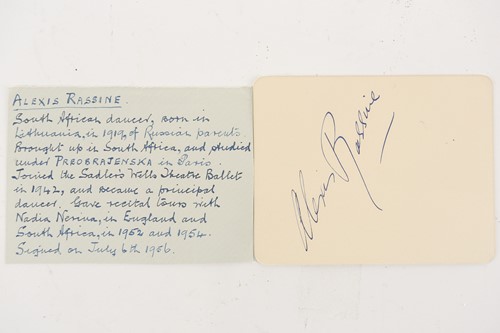 ALEXIS RASSINE.
South African dancer, born in
Lithuania, in 1919, of Russian parents.
Brought up in South Africa, and studied
under PREOBRAJENSKA in Paris.
Joined the Sadler's Wells Theatre Ballet
in 1942, and became a principal
dancer. Gave recital tours with
Nadia Nerina, in England and
South Africa, in 1952 and 1954.
Signed on July 6th 1956.
Alexis Rassine